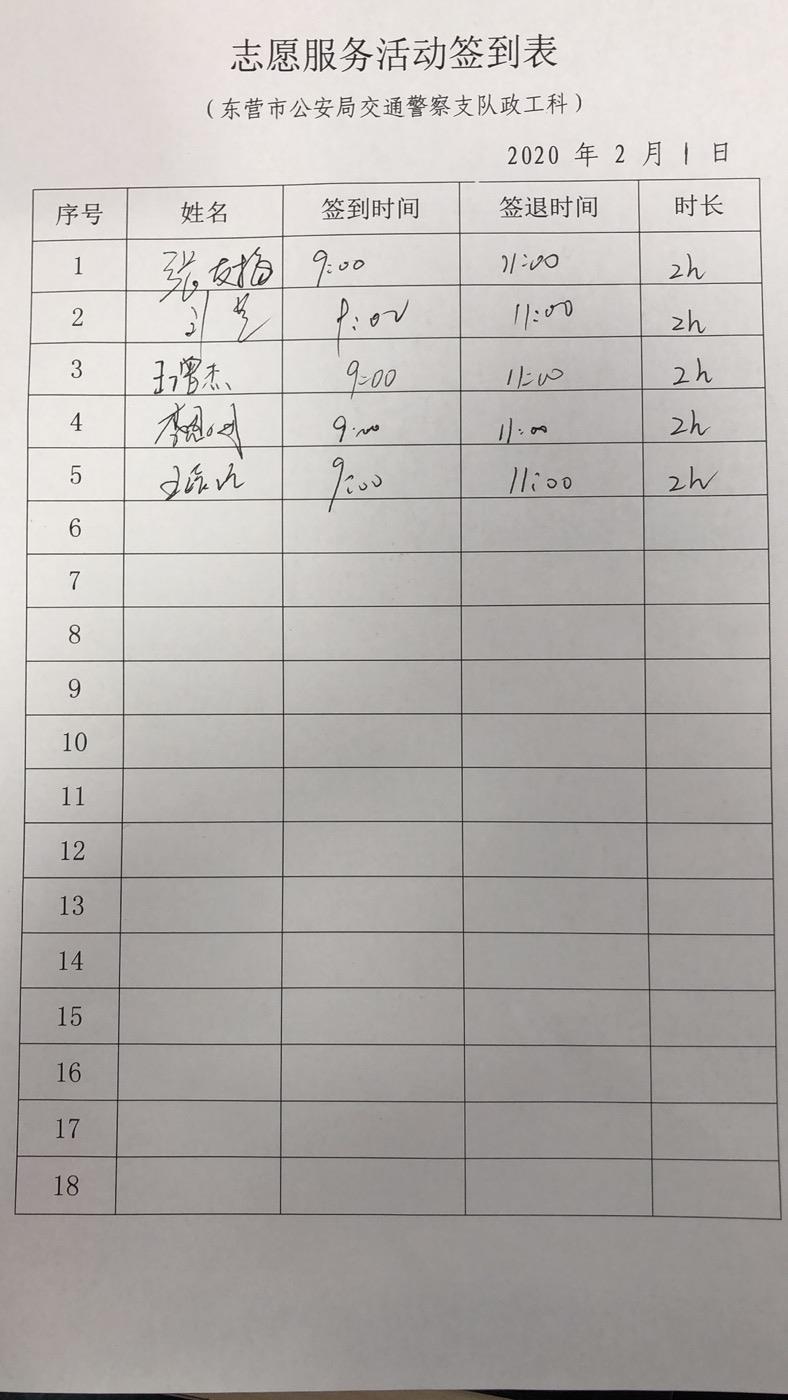 志愿服务活动签到表
（东营市公安局交通警察支队政工科）
2020 年 2 月 1 日
序号 姓名 签到时间 签退时间 时长
1 张友梅 9:00 11:00 2h
2 刘 9:00 11:00 2h
3 王曾杰 9:00 11:00 2h
4 李 9:00 11:00 2h
5 王 9:00 11:00 2h
6
7
8
9
10
11
12
13
14
15
16
17
18